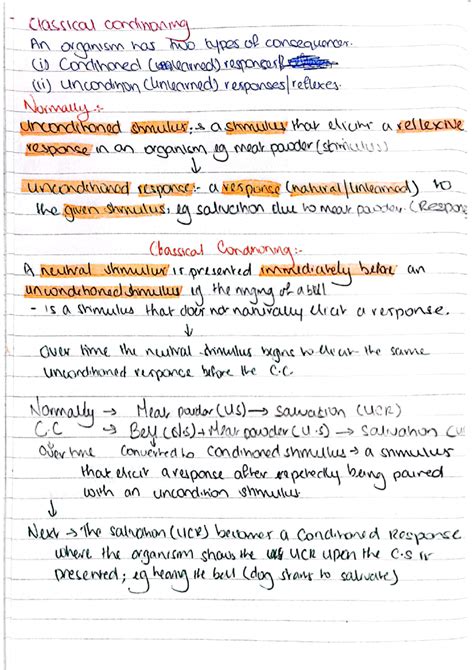 - Classical conditioning
An organism has two types of consequences.
(i) Conditioned (learned) responses
(ii) uncondition (unlearned) responses/reflexes.
Normally :-
unconditioned stimulus; is a stimulus that elicits a reflexive
response in an organism eg meat powder (stimulus)
↓
unconditioned response:- a response (natural/unlearned) to
the given stimulus, eg salivation due to meat powder. (Respons
Classical Conditioning:-
A neutral stimulus is presented immediately before an
unconditioned stimulus eg the ringing of a bell
- is a stimulus that does not naturally elicit a response.
↓
Over time the neutral stimulus begins to elicit the same
unconditioned response before the C.C.
Normally → Meat powder (US) → salivation (UCR)
C.C → Bell + Meat powder (U.S) → Salivation
Over time converted to conditioned stimulus → a stimulus
that elicit a response after repeatedly being paired
with an uncondition stimulus
↓
Next → The salivation (UCR) becomes a Conditioned Response
where the organism shows the UCR upon the C.S is
presented; eg hearing the bell (dog starts to salivate)